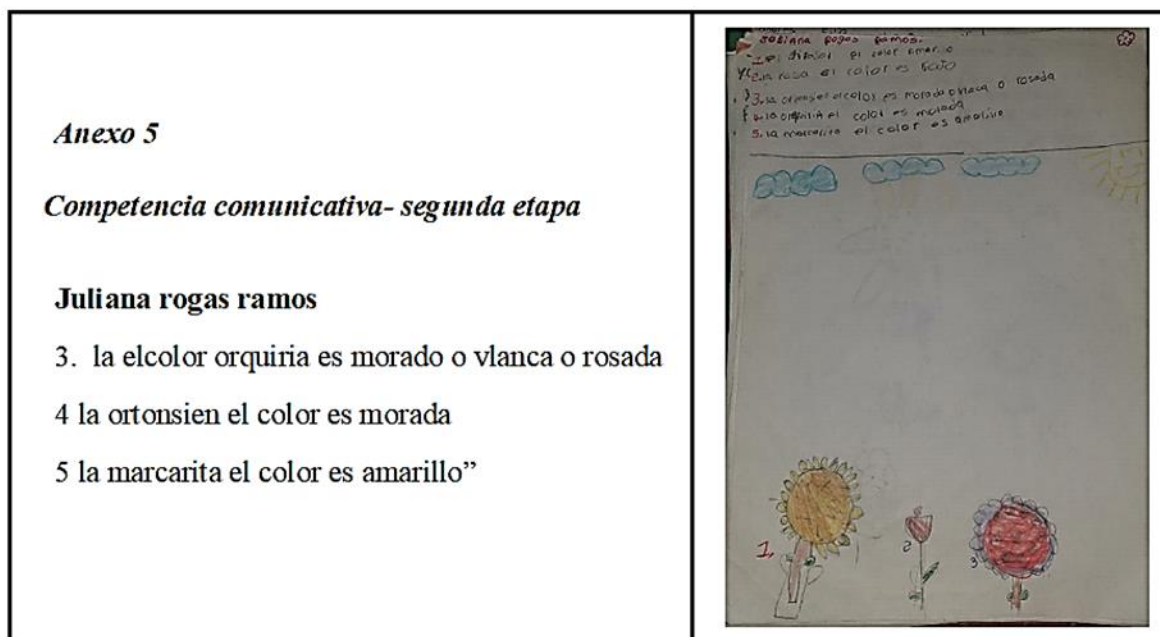 Anexo 5
Competencia comunicativa- segunda etapa
Juliana rogas ramos
3. la elcolor orquiria es morado o vlanca o rosada
4 la ortonsien el color es morada
5 la marcarita el color es amarillo”
rogas ramos.
1. el color
2. la rosa el color es
3. la el color es morado o vlaca o rosada
4. la el color es morada
5. la el color es
1,
2
3